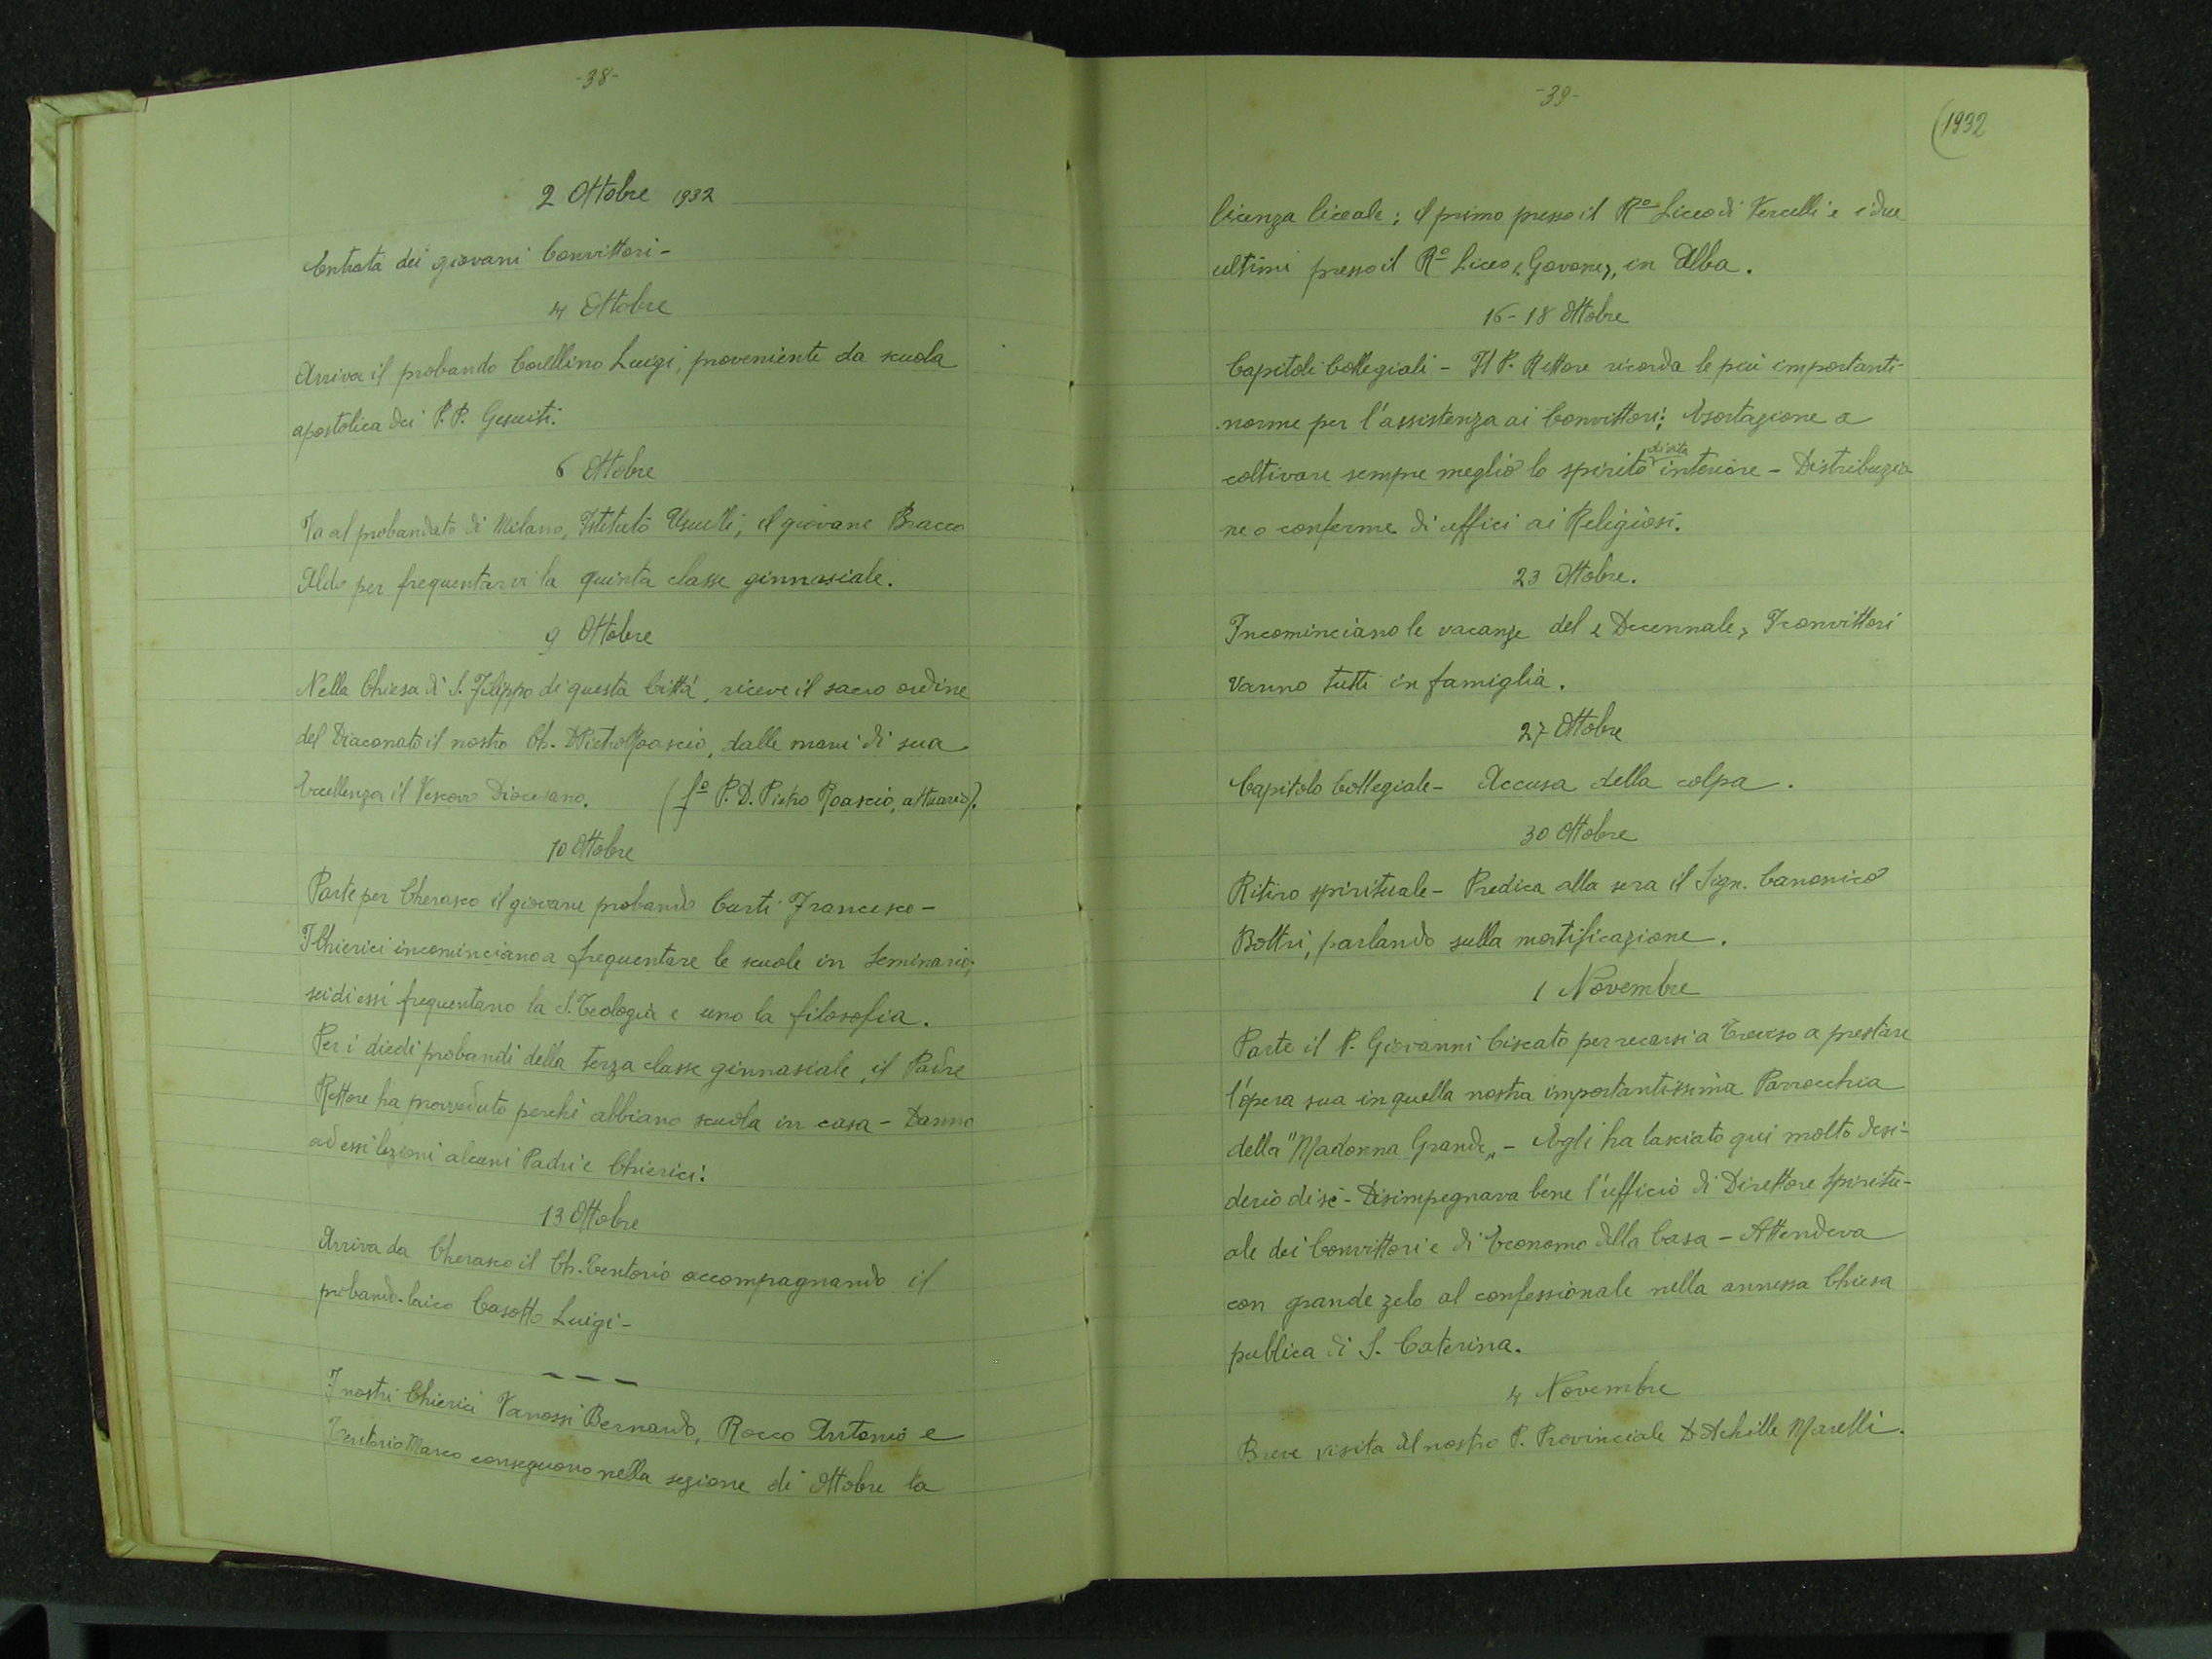 -38-
2 Ottobre 1932
Entrata dei giovani Convittori-
4 Ottobre
Arriva il probando Luigi, proveniente da scuola
apostolica dei P.P. Gesuiti.
6 Ottobre
Va al probandato di Milano, Istituto Usuelli, il giovane Bracco
Aldo per frequentarvi la quinta classe ginnasiale.
9 Ottobre
Nella Chiesa di S. Filippo di questa Città, riceve il sacro ordine
del Diaconato il nostro Ch. D Pietro Roascio, dalle mani di sua
Eccellenza il Vescovo Diocesano. (fº P. D. Pietro Roascio, attuario).
10 Ottobre
Parte per Cherasco il giovane probando Curti Francesco-
I Chierici incominciano a frequentare le scuole in Seminario;
sei di essi frequentano la S. Teologia e uno la filosofia.
Per i dieci probandi della terza classe ginnasiale, il Padre
Rettore ha provveduto perchè abbiano scuola in casa - Danno
ad essi lezioni alcuni Padri e Chierici.
13 Ottobre
Arriva da Cherasco il Ch. Tentorio accompagnando il
probando-laico Casotto Luigi-
---
I nostri Chierici Vanossi Bernardo, Rocco Antonio e
Tentorio Marco conseguono nella sezione di Ottobre la
-39-
(1932
licenza liceale; il primo presso il Rº Liceo di Vercelli e i due
ultimi presso il Rº Liceo "Govone" in Alba.
16-18 Ottobre
Capitoli Collegiali - Il P. Rettore ricorda le più importanti
norme per l'assistenza ai Convittori; Esortazione a
coltivare sempre meglio lo spirito di vita interiore - Distribuzio
ne o conferme di uffici ai Religiosi.
23 Ottobre.
Incominciano le vacanze del "Decennale" I convittori
vanno tutti in famiglia.
27 Ottobre
Capitolo Collegiale- Accusa della colpa.
30 Ottobre
Ritiro spirituale- Predica alla sera il Sign. Canonico
Bottri, parlando sulla mortificazione.
1 Novembre
Parte il P. Giovanni Ciscato per recarsi a Treviso a prestare
l'opera sua in quella nostra importantissima Parrocchia
della "Madonna Grande" - Egli ha lasciato qui molto desi-
derio di sè - Disimpegnava bene l'ufficio di Direttore Spiritu-
ale dei Convittori e di Economo della Casa - Attendeva
con grande zelo al confessionale nella annessa Chiesa
publica di S. Caterina.
4 Novembre
Breve visita del nostro P. Provinciale D Achille Marelli.